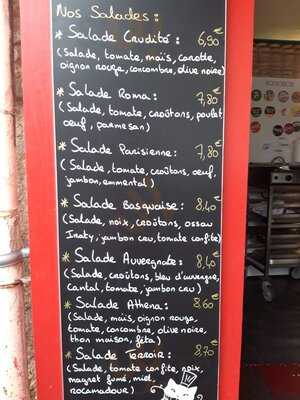 Nos Salades:
* Salade Crudité : 6,90€
(Salade, tomate, maïs, carotte,
oignon rouge, concombre, olive noire)
* Salade Roma : 7,80€
(Salade, tomate, croûtons, poulet
oeuf, parmesan)
* Salade Parisienne : 7,80€
(Salade, tomate, croûtons, oeuf,
jambon, emmental)
* Salade Basquaise : 8,40€
(Salade, noix, croûtons, ossau
Iraty, jambon cru, tomate confite)
* Salade Auvergnate : 8,40€
(Salade, croûtons, bleu d'auvergne,
Cantal, tomate, jambon cru)
* Salade Athena : 8,60€
(Salade, maïs, oignon rouge,
tomate, concombre, olive noire,
thon maison, féta)
* Salade Terroir : 8,70€
(Salade, tomate confite, noix,
magret fumé, miel,
rocamadour)